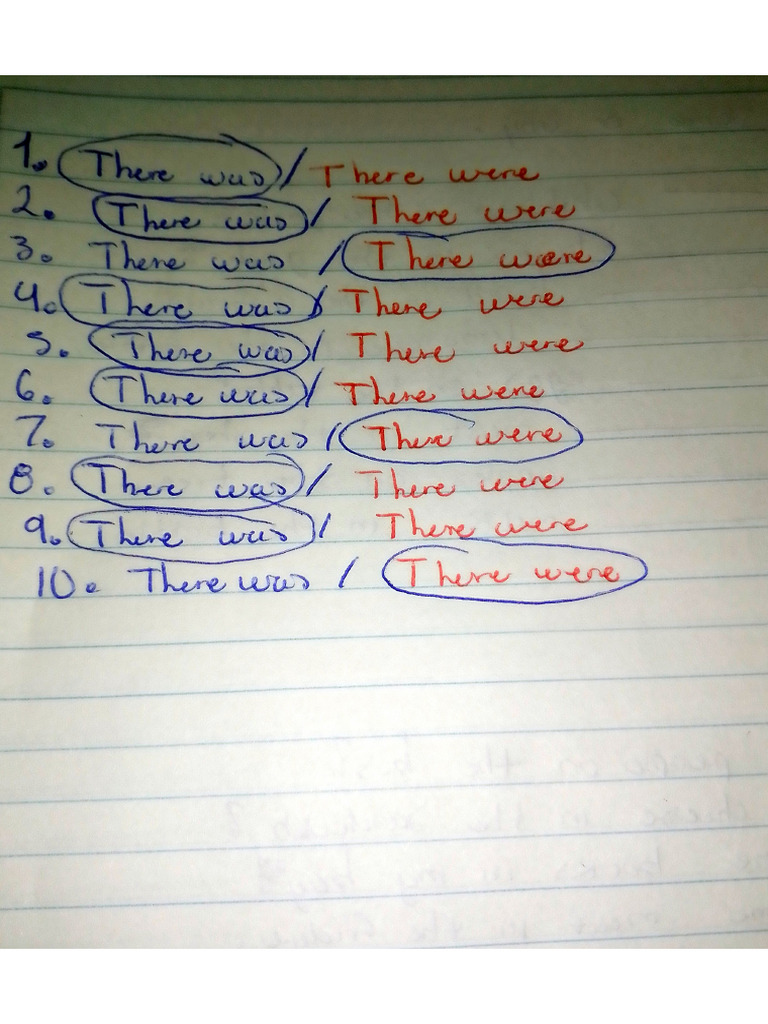 1. There was / There were
2. There was / There were
3. There was / There were
4. There was / There were
5. There was / There were
6. There was / There were
7. There was / There were
8. There was / There were
9. There was / There were
10. There was / There were